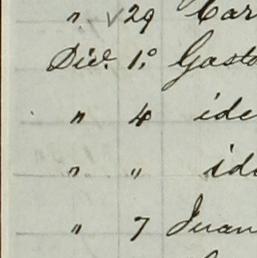 " √29 Car
Dic.e 1.° Gasto
" 4 ide
" " ide
" 7 Juan